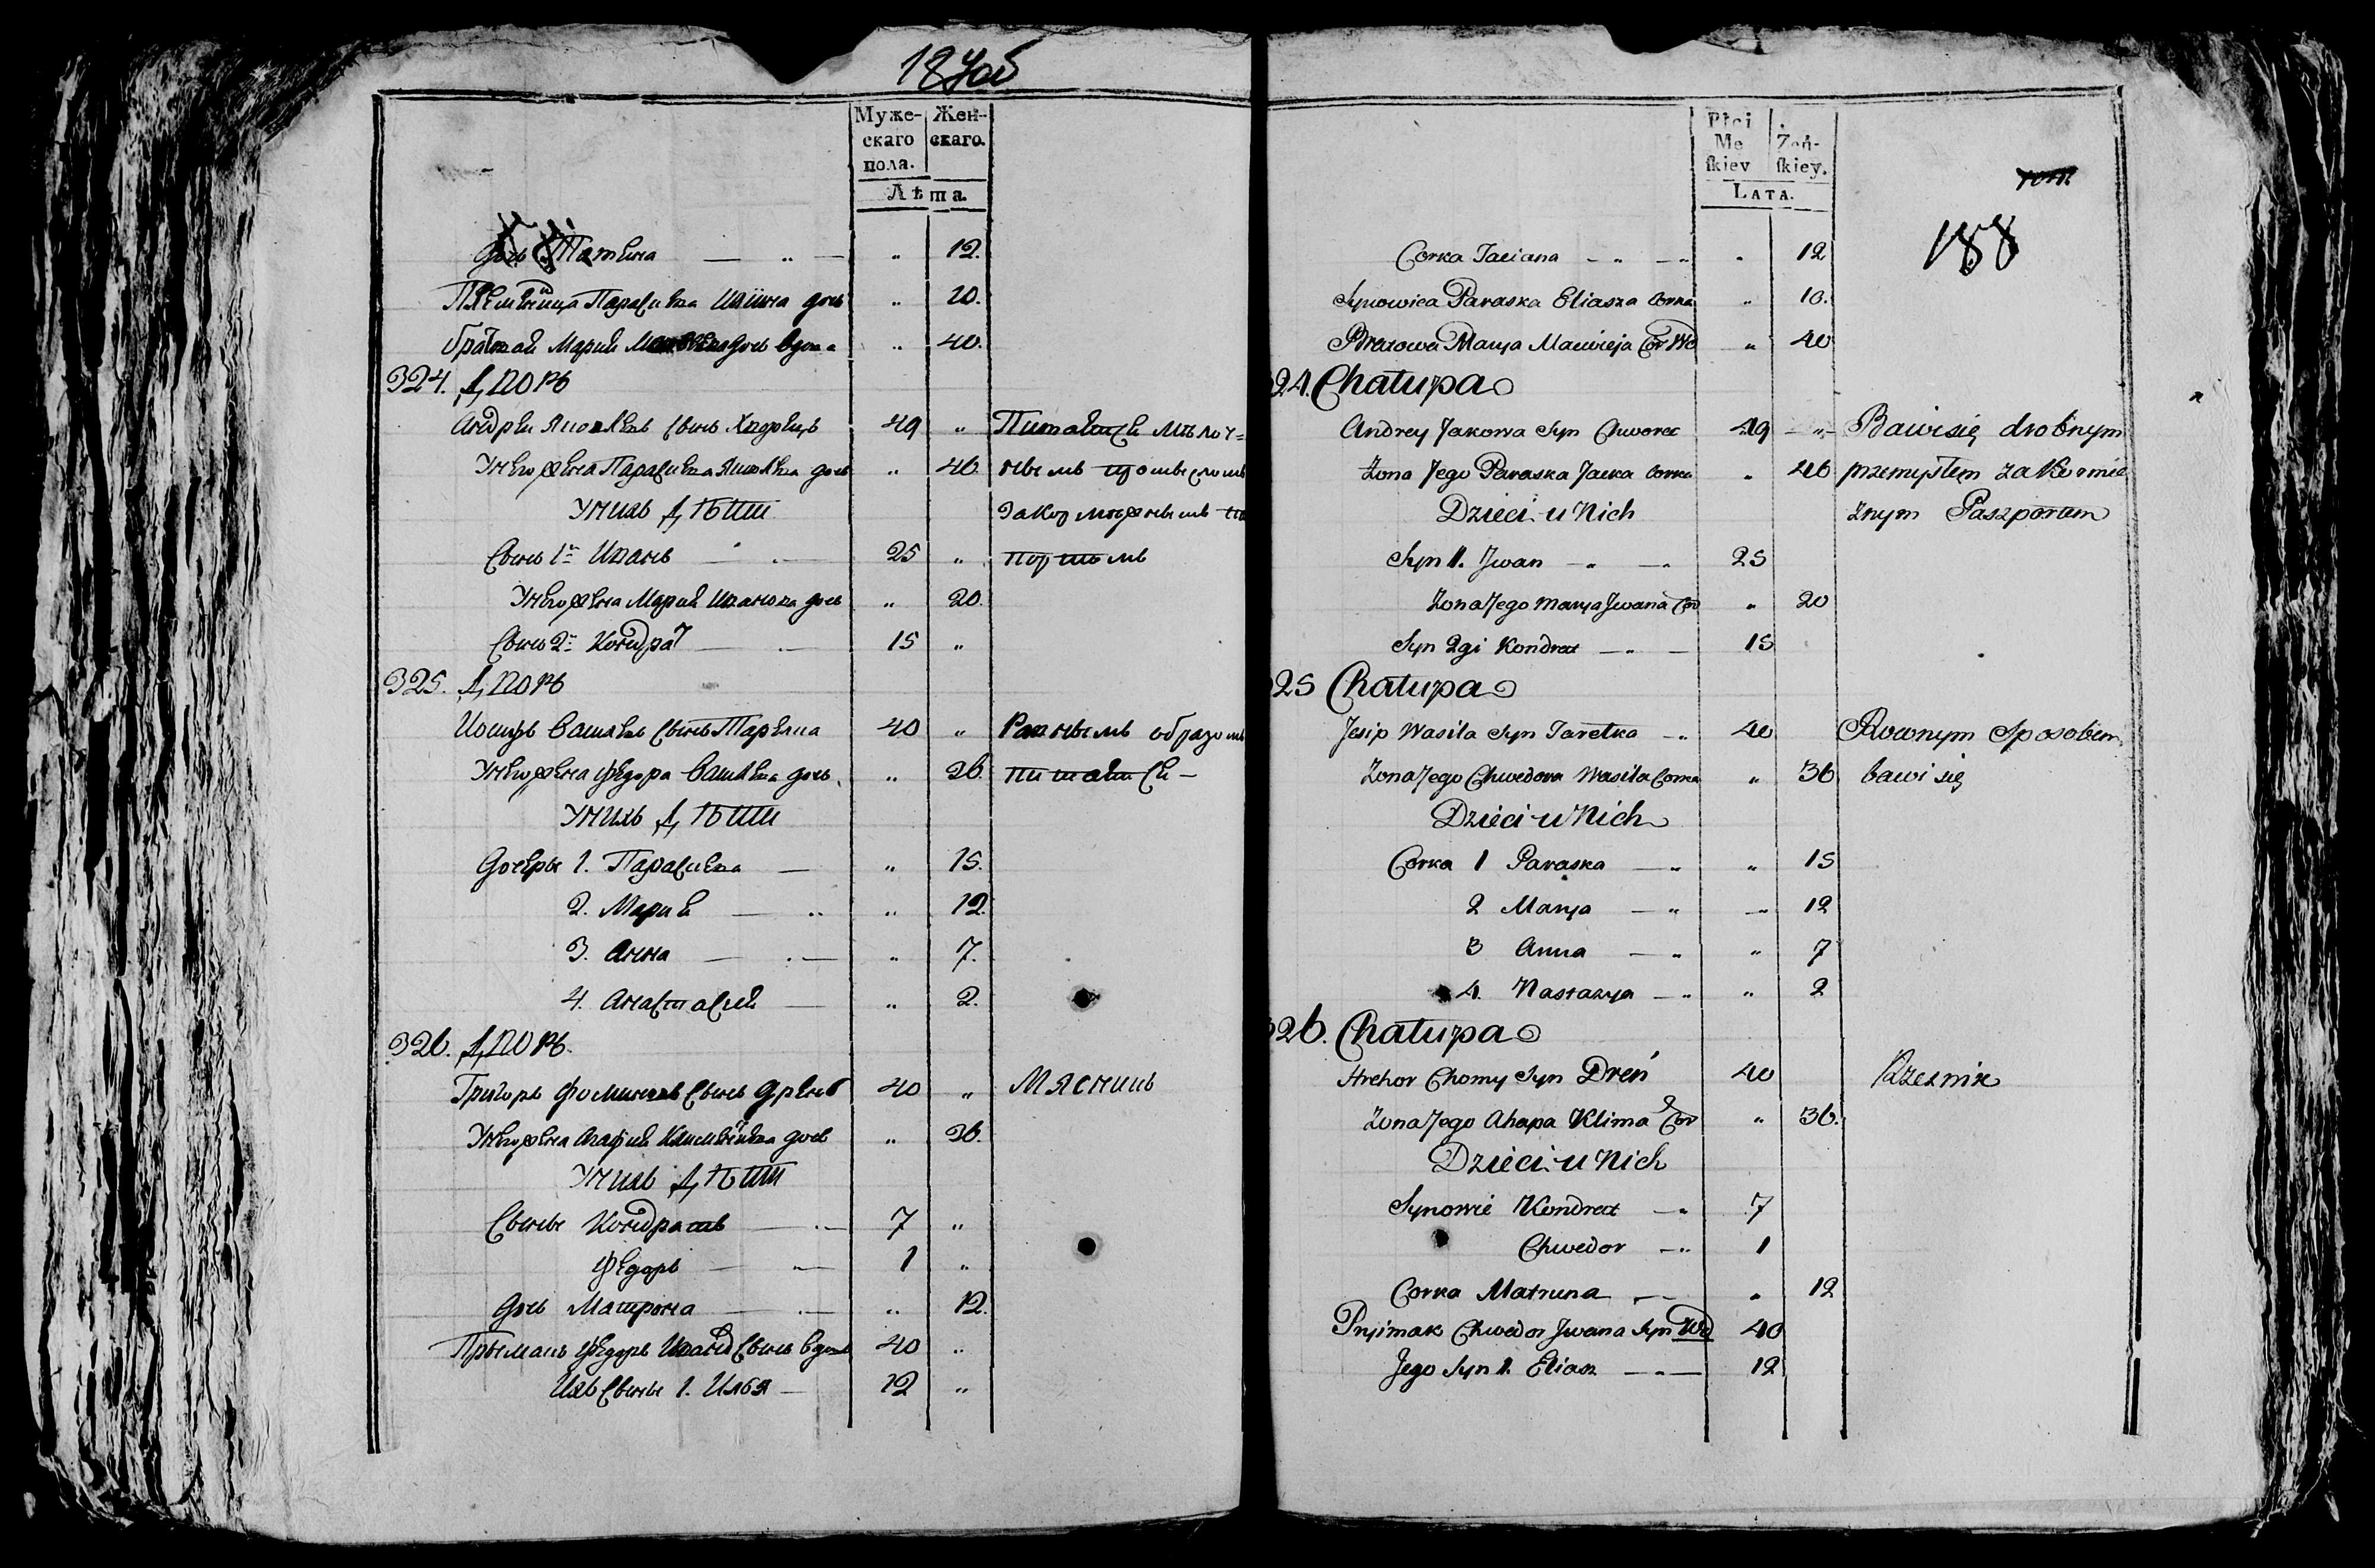 187об
Муже-
скаго
пола.
Жен-
скаго.
Лѣта.
дочь Татяна — „ — „ 12.
Племѣнница Параскева Илїина дочь „ 10.
братовая Мария дочь вдова „ 40.
324. Дворъ
Андрей Яковлевъ сынъ Хворецъ 49 „ Питается мѣлоч=
У него жена Параскева Яковлева дочь „ 46. нымъ промысломъ
У нихъ Дѣти закормежнымъ
Сынъ 1й Иванъ 25 „ портомъ
У него жена Мария Иванова дочь „ 20.
Сынъ 2й Кондрат 15 „
325. Дворъ
Иосипъ Васильевъ сынъ 40 „ Равнымъ образомъ
У него жена Федора Васильева дочь „ 36. питается —
У нихъ Дѣти
Дочери 1. Параскева — „ 15.
2. Мария — „ „ 12.
3. Анна — „ 7.
4. Анастасия — „ 2.
326. Дворъ.
Григорь Фоминъ сынъ Дренъ 40 „ Мясникъ
У него жена Агафия Климѣнтиева дочь „ 36.
У нихъ Дѣти
Сыны Кондратъ 7 „
Федоръ 1 „
дочь Матрона „ 12.
Прымакъ Федоръ Иванов сынъ вдовъ 40 „
Ихъ сыны 1. Илья — 12 „
Płci
Me
skiey
Zeń-
skiey.
Lata.
188
Corka Taciana — „ — „ 12
Synowica Paraska Eliasza Corka „ 10.
Bratowa Marya Macwieja Cor Wd „ 40
324. Chałupa
Andrey Jakowa Syn Chworec 49 — „ — Bawi się drobnym
Żona Jego Paraska Jacka Corka „ 46 przemysłem za Kormie
Dzieci u Nich żnym Paszportem
Syn 1. Jwan — „ — „ 25
Żona Jego Marya Jwana Cor „ 20
Syn 2gi Kondrat — „ — 15
325 Chałupa
Jesip Wasila Syn Taretka — „ 40 Rownym Sposobem
Żona Jego Chwedora Wasila Corka „ 36 bawi się
Dzieci u Nich
Corka 1 Paraska — „ „ 15
2 Marya — „ — „ 12
3 Anna — „ „ 7
4. Nastazya — „ „ 2
326. Chałupa
Hrehor Chomy Syn Dreń 40 Rzeznik
Żona Jego Ahapa Klima Cor „ 36.
Dzieci u Nich
Synowie Kondrat — „ 7
Chwedor — „ 1
Corka Matruna — „ 12
Pryimak Chwedor Jwana Syn Wd 40
Jego Syn 1. Eliasz — „ — 12